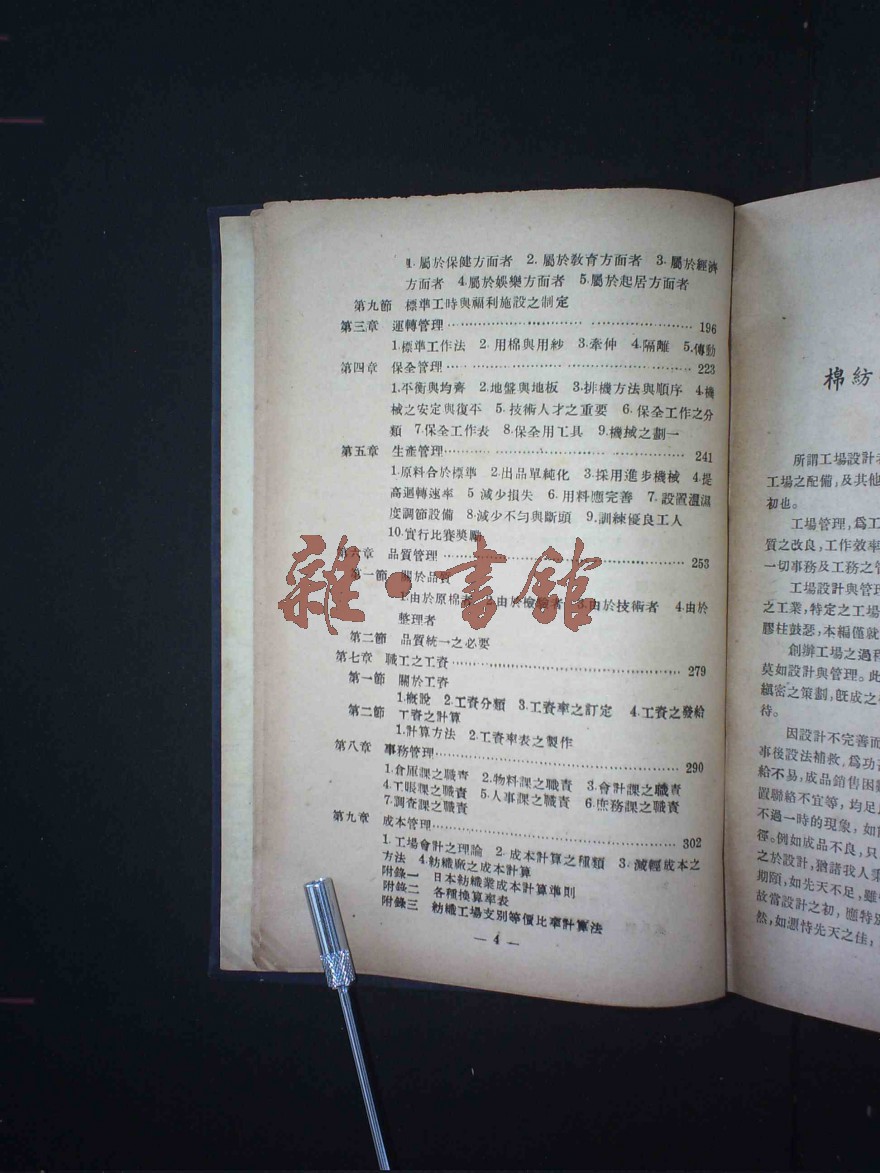 1.屬於保健方面者 2.屬於教育方面者 3.屬於經濟
方面者 4.屬於娛樂方面者 5.屬於起居方面者
第九節 標準工時與福利施設之制定
第三章 運轉管理……196
1.標準工作法 2.用棉與用紗 3.牽伸 4.隔離 5.傳動
第四章 保全管理……223
1.不衡與均齊 2.地盤與地板 3.排機方法與順序 4.機
械之安定與復平 5.技術人才之重要 6.保全工作之分
類 7.保全工作表 8.保全用工具 9.機械之劃一
第五章 生產管理……241
1.原料合於標準 2.出品單純化 3.採用進步機械 4.提
高迴轉速率 5.減少損失 6.用料應完善 7.設置溫濕
度調節設備 8.減少不勻與斷頭 9.訓練優良工人
10.實行比賽獎勵
第六章 品質管理……253
第一節 關於品質
1.由於原棉者 2.由於檢驗者 3.由於技術者 4.由於
整理者
第二節 品質統一之必要
第七章 職工之工資……279
第一節 關於工資
1.概說 2.工資分類 3.工資率之訂定 4.工資之發給
第二節 工資之計算
1.計算方法 2.工資率表之製作
第八章 事務管理……290
1.倉庫課之職責 2.物料課之職責 3.會計課之職責
4.工賬課之職責 5.人事課之職責 6.庶務課之職責
7.調查課之職責
第九章 成本管理……302
1.工場會計之理論 2.成本計算之種類 3.減輕成本之
方法 4.紡織廠之成本計算
附錄一 日本紡織業成本計算準則
附錄二 各種換算率表
附錄三 紡織工場支別等價比率計算法
— 4 —
雜·書館
棉紡
所謂工場設計者
工場之配備,及其他
初也。
工場管理,爲工
質之改良,工作效率
一切事務及工務之管
工場設計與管理
之工業,特定之工場
膠柱鼓瑟,本編僅就
創辦工場之過程
莫如設計與管理。此
縝密之策劃,旣成之
待。
因設計不完善而
事後設法補救,爲功
給不易,成品銷售困難
置聯絡不宜等,均足
不過一時的現象,如
徑。例如成品不良,只
之於設計,猶諸我人秉
期頤,如先天不足,雖
故當設計之初,應特別
然,如憑恃先天之佳,